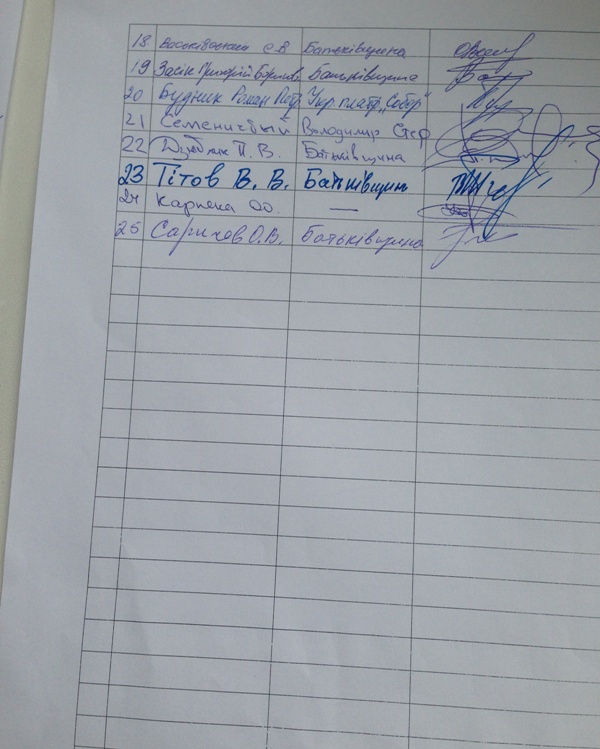 18 С.В. Батьківщина
19 Засік Григорій Батьківщина
20 Будник Роман Петр Укр платф „Собор"
21 Семенистый Володимир Стеф
22 П. В. Батьківщина
23 Тітов В. В. Батьківщин
24 Карпека О.О. —
25 Сарихов О.В. Батьківщина